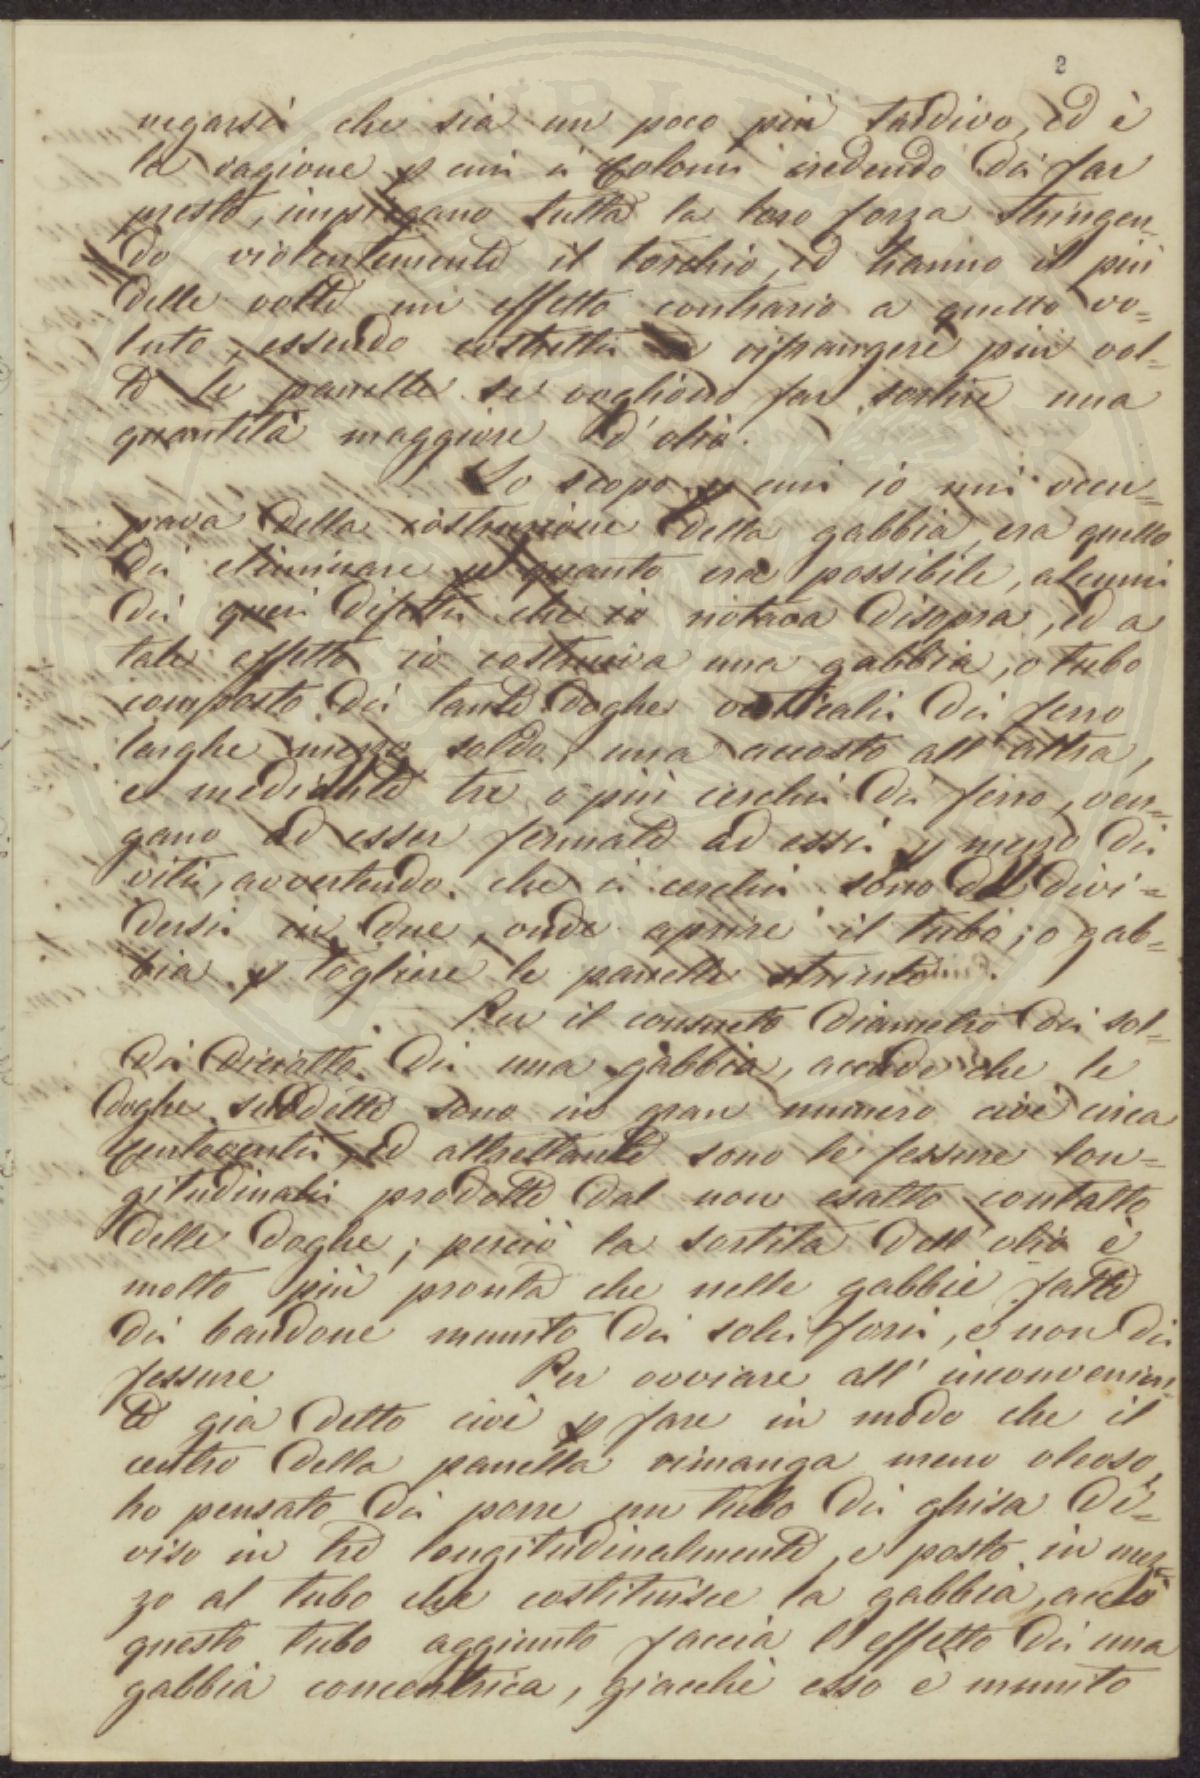 2
negarsi che sia un poco più tardivo, ed è
la ragione p cui i Coloni credendo di far
presto, impiegano tutta la loro forza stringen-
do violentemente il torchio, ed hanno il più
delle volte un effetto contrario a quello vo-
luto, essendo costretti a rifrangere più vol-
te le panelle se vogliono far sortire una
quantità maggiore d'olio.
Lo scopo p cui io mi occu-
pava della costruzione della gabbia, era quello
di eliminare p quanto era possibile, alcuni
di quei difetti che io notava disopra, ed a
tale effetto io costruiva una gabbia, o tubo
composto di tante doghe verticali di ferro
larghe mezzo soldo, una accosto all'altra,
e mediante tre o più cerchi di ferro, ven-
gano ad esser fermate ad essi p mezzo di
viti, avvertendo che i cerchi sono da divi-
dersi in due, onde aprire il tubo, o gab-
bia p togliere le panelle strinte.
Per il consueto diametro di sol-
di diciotto di una gabbia, accade che le
doghe suddette sono in gran numero cioè circa
Centoventi, ed altrettante sono le fessure lon-
gitudinali prodotte dal non esatto contatto
delle doghe; perciò la sortita dell'olio è
molto più pronta che nelle gabbie fatte
di bandone munito di soli fori, e non di
fessure Per ovviare all'inconvenien-
te già detto cioè p fare in modo che il
centro della panella rimanga meno oleoso,
ho pensato di porre un tubo di ghisa di-
viso in tre longitudinalmente, e posto in mez-
zo al tubo che costituisce la gabbia, acciò
questo tubo aggiunto faccia l'effetto di una
gabbia concentrica, giacchè esso è munito